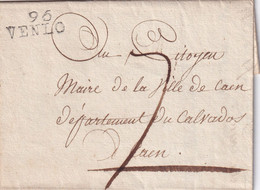 96
VENLO
Au Citoyen
Maire de la Ville de Caen
département du Calvados
Caen
7